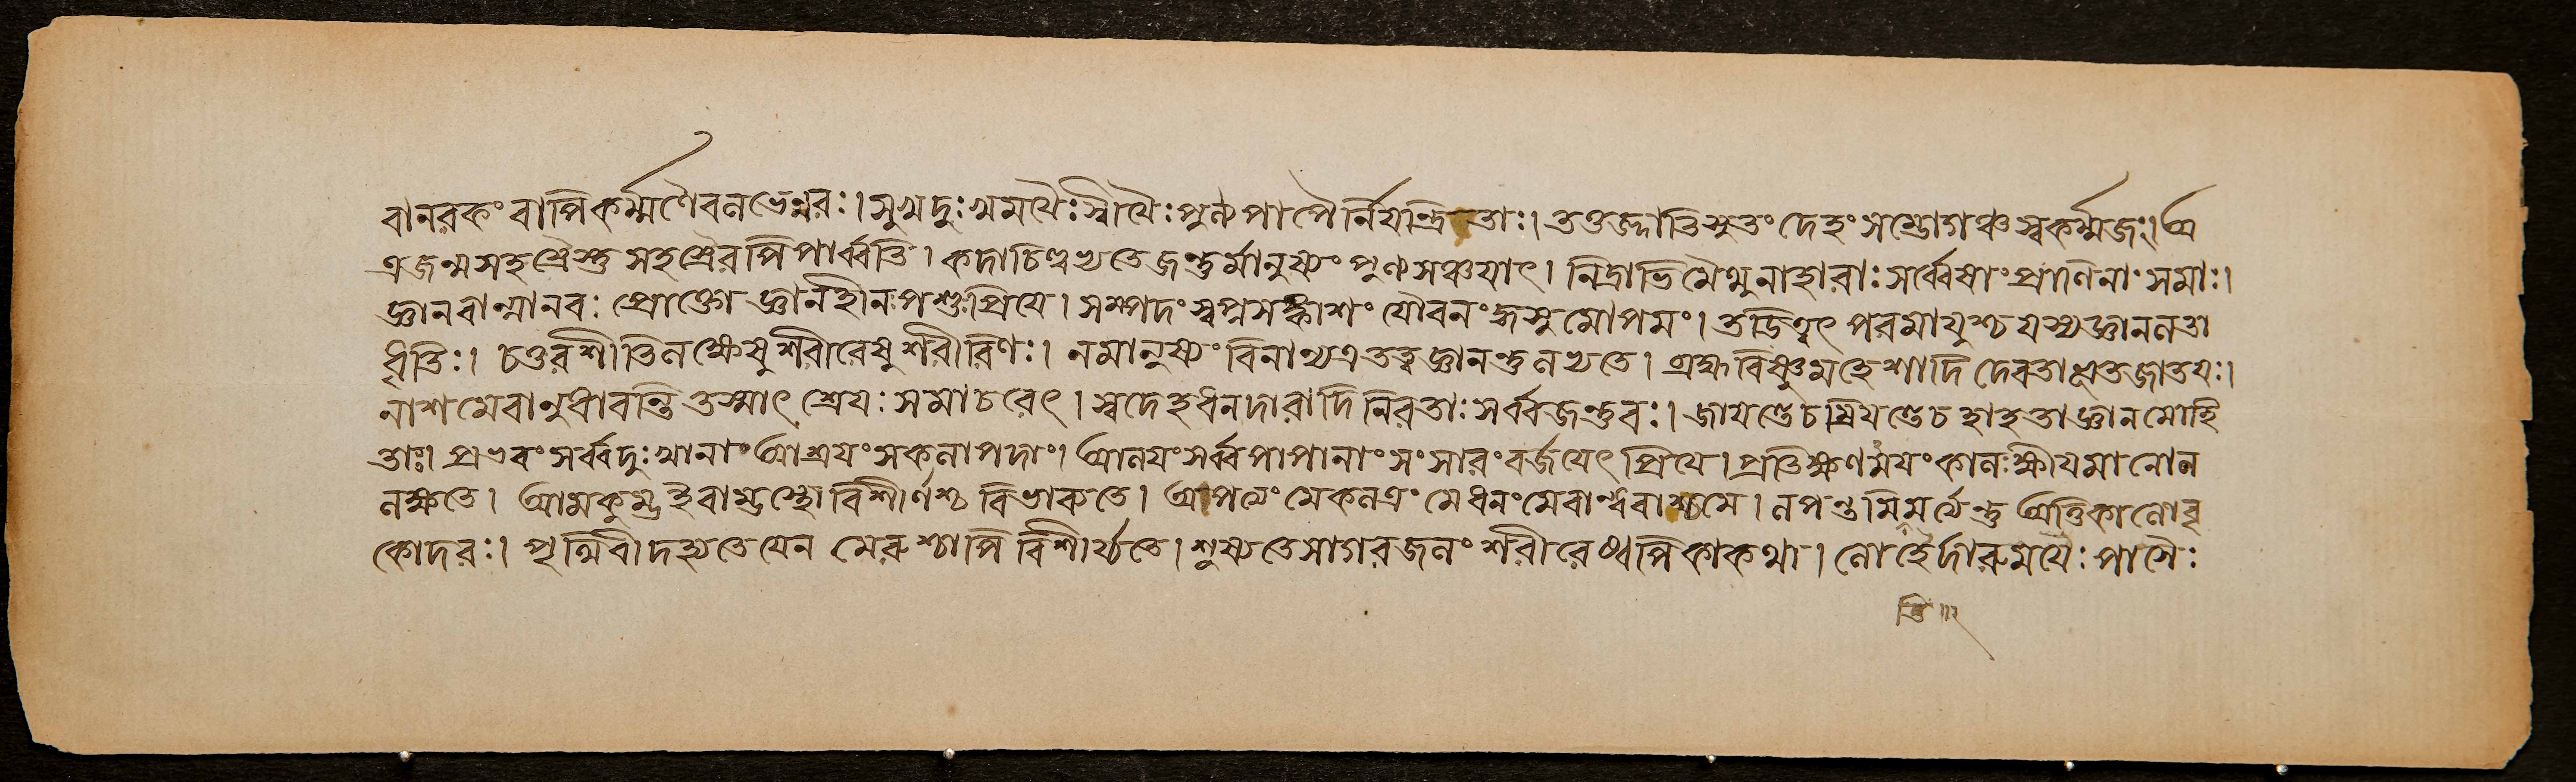 বানরকং বাপি কর্ম্মণৈব নভেন্নরঃ। সুখদুঃখময়ৈঃ স্বীয়ৈঃ পুণ্যপাপৈর্নিয়ন্ত্রিতাঃ। তত্তজ্জাতিসুতং দেহং সম্ভোগঞ্চ স্বকর্ম্মজং। অ
ত্র জন্মসহস্রৈস্তু সহস্রৈরপি পার্ব্বতি। কদাচিল্লভ্যতে জন্তুর্মানুষ্যং পুণ্যসঞ্চয়াৎ। নিদ্রাভিমৈথুনাহারাঃ সর্ব্বেষাং প্রাণিনাং সমাঃ।
জ্ঞানবান্মানবঃ প্রোক্তো জ্ঞানহীনঃ পশুঃ প্রিয়ে। সম্পদং স্বপ্নসঙ্কাশং যৌবনং কুসুমোপমং। তডিত্বৎ পরমায়ুশ্চ যস্য জ্ঞাননতা
ধৃতিঃ। চতুরশীতিনক্ষেষু শরীরেষু শরীরিণঃ। নমানুষ্যং বিনান্যত্র তত্ত্বজ্ঞানন্তু নভ্যতে। ব্রহ্মবিষ্ণুমহেশাদি দেবতাভূতজাতয়ঃ।
নাশমেবানুধাবন্তি তস্মাৎ শ্রেয়ঃ সমাচরেৎ। স্বদেহধনদারাদি নিরতাঃ সর্ব্বজন্তুবঃ। জায়ন্তে চ ম্রিয়ন্তে চ হাহতাজ্ঞানমোহি
তাঃ। প্রভবং সর্ব্বদুঃখানাং আশ্রয়ং সকনাপদাং। আনয়ং সর্ব্বপাপানাং সংসারং বর্জয়েৎ প্রিয়ে। প্রতিক্ষণময়ং কানঃ ক্ষীয়মানো ন
নক্ষতে। আমকুম্ভ ইবাম্ভস্থো বিশীর্ণশ্চ বিভাব্যতে। অপত্যং মে কনত্রং মে ধনং মে বান্ধবাশ্চ মে। নপন্তমিমর্ত্যেন্তু অত্তি কানোবৃ
কোদরঃ। পৃথিবী দহ্যতে যেন মেরুশ্চাপি বিশীর্য্যতে। শুষ্যতে সাগরজনং শরীরেষ্বপি কা কথা। নোহৈর্দারুময়ৈঃ পাশৈঃ
তি॥